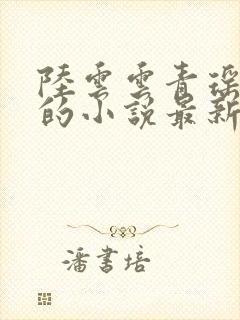 陸雲雲青瑶
的小説最新
潘書培